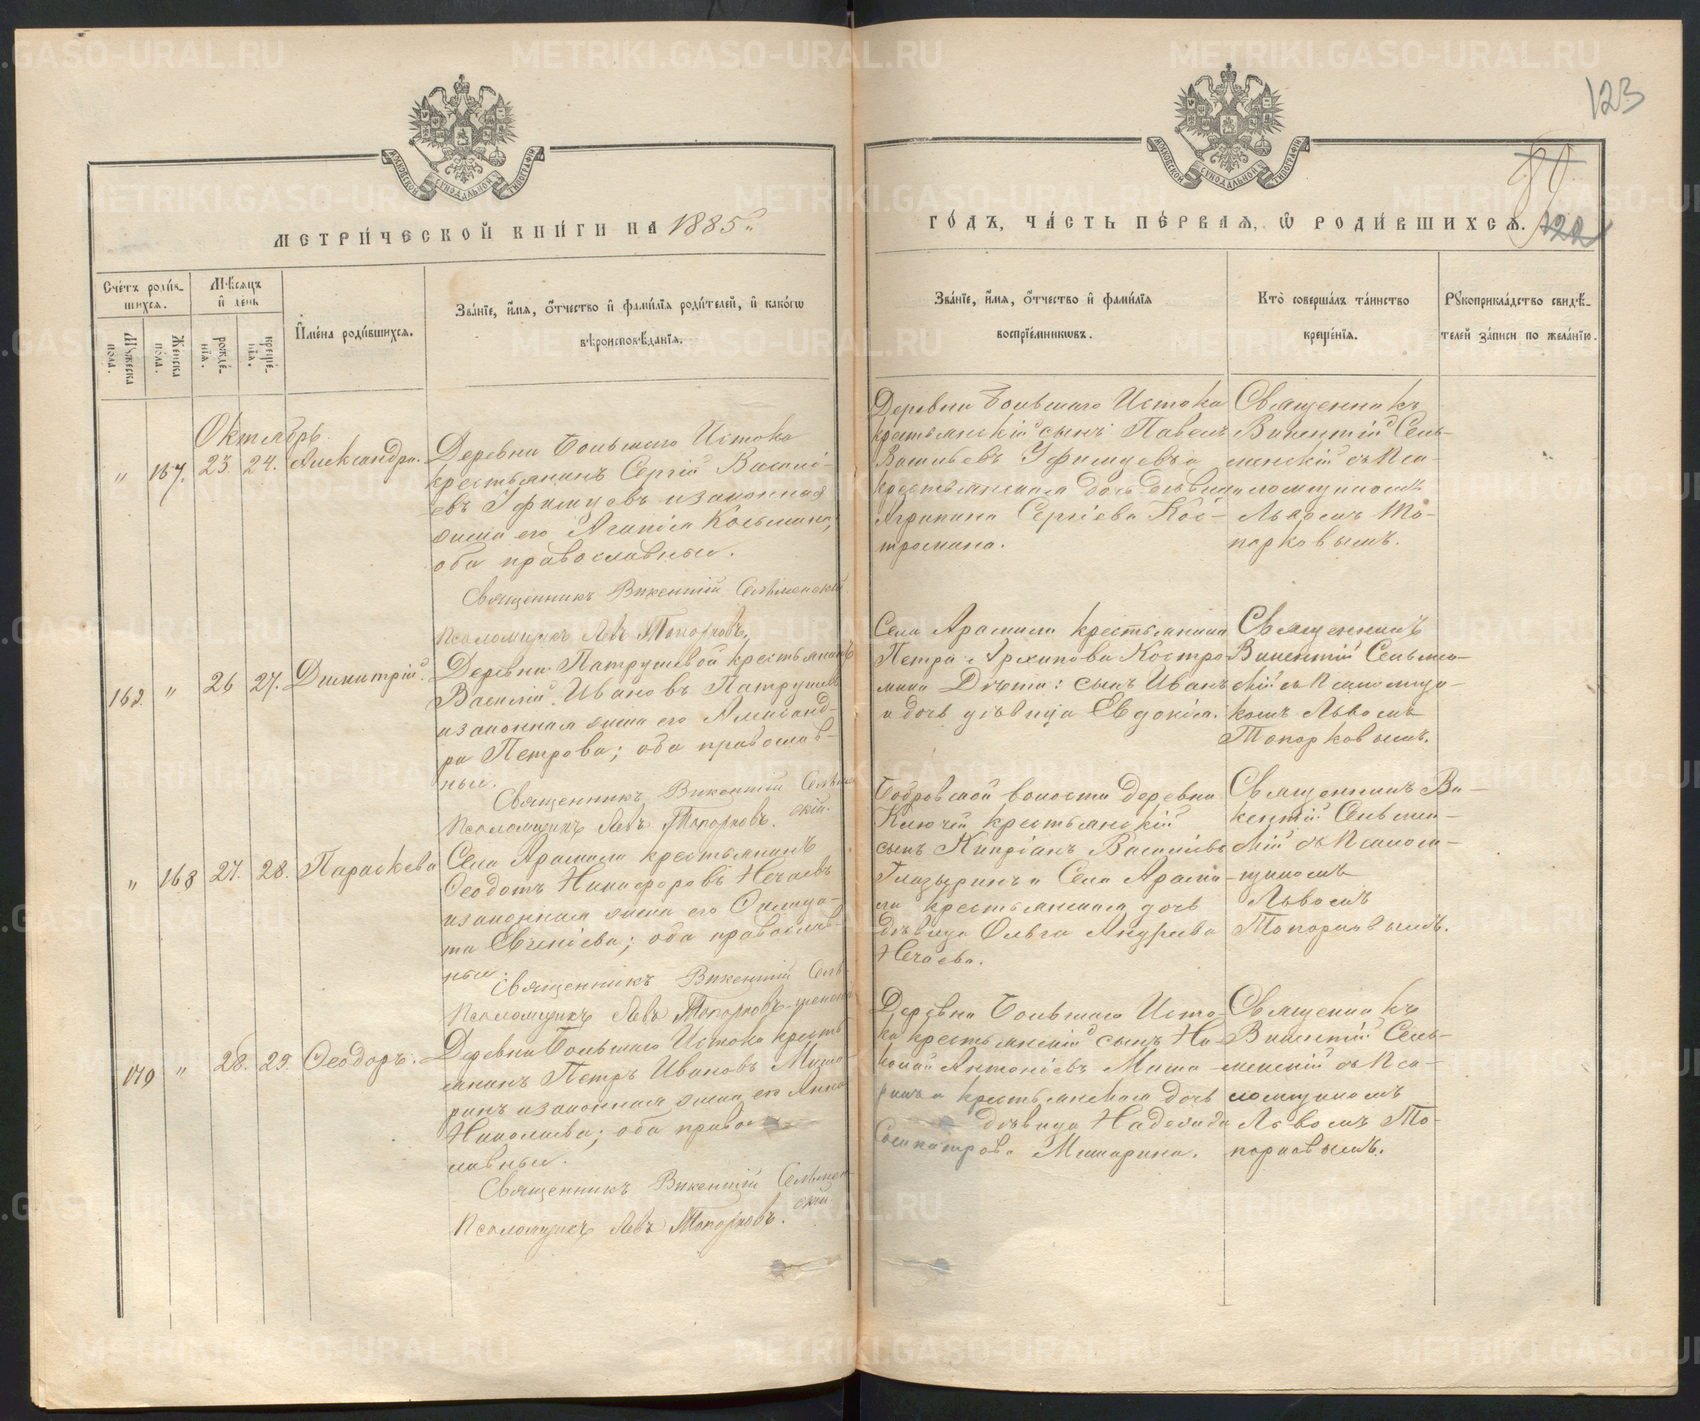 123
МОСКОВСКОЙ СѴНОДАЛЬНОЙ ТИПОГРАФІИ
МОСКОВСКОЙ СѴНОДАЛЬНОЙ ТИПОГРАФІИ
МЕТРИ́ЧЕСКОЙ КНИ́ГИ НА 1885
ГО́ДЪ, ЧА́СТЬ ПЕ́РВАѦ, Ѽ РОДИ́ВШИХСѦ.
122
Сче́тъ роди́в-
шихся.
Мѣ́сяцъ
и҆ день
Мꙋ́жеска по́ла.
Же́нска по́ла.
рожде́-нїѧ.
креще́-нїѧ.
И҆мена̀ роди́вшихсѧ.
Зва́нїе, и҆́мѧ, ѻ҆́тчество и҆ фами́лїѧ роди́телей, и҆ како́гѡ
вѣроисповѣ́данїѧ.
Зва́нїе, и҆́мѧ, ѻ҆́тчество и҆ фами́лїѧ
воспрїе́мникѡвъ.
Кто̀ соверша́лъ та́инство
креще́нїѧ.
Рꙋкоприкла́дство свидѣ́-
телей за́писи по жела́нїю.
Октябрь
" 167. 23 24. Александра.
Деревни Большаго Истока
крестьянинъ Сергій Василь-
евъ Уфимцевъ и законная
жена его Агапія Косьмина;
оба православные.
Священникъ Викентій Сельменскій
Псаломщикъ Левъ Топорковъ.
Деревни Большаго Истока
крестьянскій сынъ Павелъ
Васильевъ Уфимцевъ и
крестьянская дочь девица
Агрипина Сергіева Кос-
тромина.
Священникъ
Викентій Сель-
менскій съ Пса-
ломщикомъ
Львомъ То-
порковымъ.
162. " 26 27. Димитрій.
Деревни Патрушевой крестьянинъ
Василій Ивановъ Патрушевъ
и законная жена его Александ-
ра Петрова; оба православ-
ные.
Священникъ Викентій Сельмен-
скій.
Псаломщикъ Левъ Топорковъ.
Села Арамили крестьянина
Петра Архипова Костро-
мина Дѣти: сынъ Иванъ
и дочь дѣвица Евдокія.
Священникъ
Викентій Сельмен-
скій съ Псаломщи-
комъ Львомъ
Топорковымъ.
" 168 27. 28. Параскева
Села Арамили крестьянинъ
Ѳеодотъ Никифоровъ Нечаевъ
и законная жена его Филица-
та Евгеніева; оба православ-
ные.
Священникъ Викентій Сель-
менскій
Псаломщикъ Левъ Топорковъ
Бобровской волости деревни
Ключей крестьянскій
сынъ Кипріанъ Васильевъ
Глазыринъ и Села Арами-
ли крестьянская дочь
дѣвица Ольга Андреева
Нечаева.
Священникъ Ви-
кентій Сельмен-
скій съ Псалом-
щикомъ
Львомъ
Топорковымъ.
170 " 28. 29. Ѳеодоръ.
Деревни Большаго Истока кресть-
янинъ Петръ Ивановъ Маша-
ринъ и законная жена его Анна
Николаева; оба право-
славные.
Священникъ Викентій Сельмен-
скій.
Псаломщикъ Левъ Топорковъ.
Деревни Большаго Исто-
ка крестьянскій сынъ Ни-
колай Антоніевъ Маша-
ринъ и крестьянская дочь
дѣвица Надежда
Сосипатрова Машарина.
Священникъ
Викентій Сель-
менскій съ Пса-
ломщикомъ
Львомъ То-
порковымъ.
METRIKI.GASO-URAL.RU